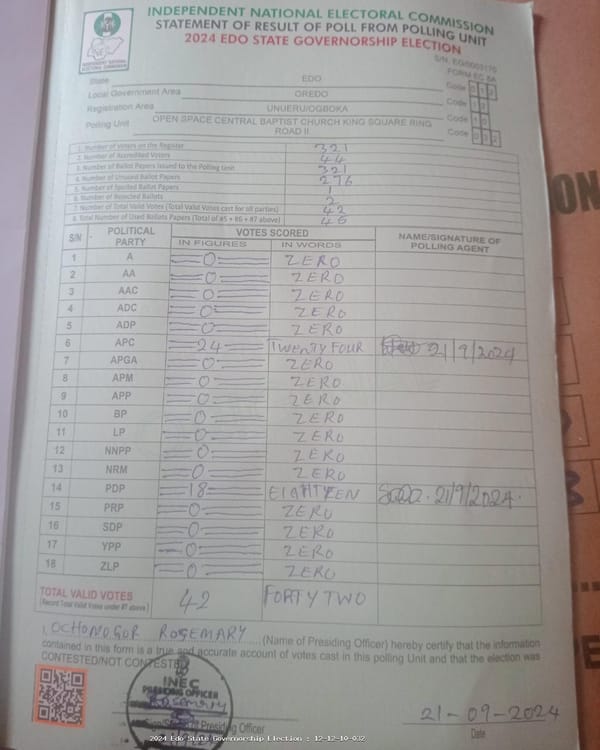 INDEPENDENT NATIONAL ELECTORAL COMMISSION
STATEMENT OF RESULT OF POLL FROM POLLING UNIT
2024 EDO STATE GOVERNORSHIP ELECTION
FORM EC 8A
State EDO Code
Local Government Area OREDO Code
Registration Area UNUERU/OGBOKA Code
Polling Unit OPEN SPACE CENTRAL BAPTIST CHURCH KING SQUARE RING ROAD II Code
1. Number of Voters on the Register 321
2. Number of Accredited Voters 44
3. Number of Ballot Papers Issued to the Polling Unit 321
4. Number of Unused Ballot Papers 276
5. Number of Spoiled Ballot Papers 1
6. Number of Rejected Ballots 2
7. Number of Total Valid Votes (Total Valid Votes cast for all parties) 42
8. Total Number of Used Ballots Papers (Total of #5 + #6 + #7 above)
S/N POLITICAL PARTY VOTES SCORED NAME/SIGNATURE OF POLLING AGENT
IN FIGURES IN WORDS
1 A 0 ZERO
2 AA 0 ZERO
3 AAC 0 ZERO
4 ADC 0 ZERO
5 ADP 0 ZERO
6 APC 24 TWENTY FOUR 21/9/2024
7 APGA 0 ZERO
8 APM 0 ZERO
9 APP 0 ZERO
10 BP 0 ZERO
11 LP 0 ZERO
12 NNPP 0 ZERO
13 NRM 0 ZERO
14 PDP 18 21/9/2024
15 PRP 0 ZERO
16 SDP 0 ZERO
17 YPP 0 ZERO
18 ZLP 0 ZERO
TOTAL VALID VOTES 42 FORTY TWO
(Record Total Valid Votes under #7 above)
I, OCHONOGOR ROSEMARY (Name of Presiding Officer) hereby certify that the information
contained in this form is a true and accurate account of votes cast in this polling Unit and that the election was
CONTESTED/NOT CONTESTED
INEC
PRESIDING OFFICER
Rosemary
Presiding Officer
21-09-2024
Date
2024 Edo State Governorship Election : 12-12-10-032